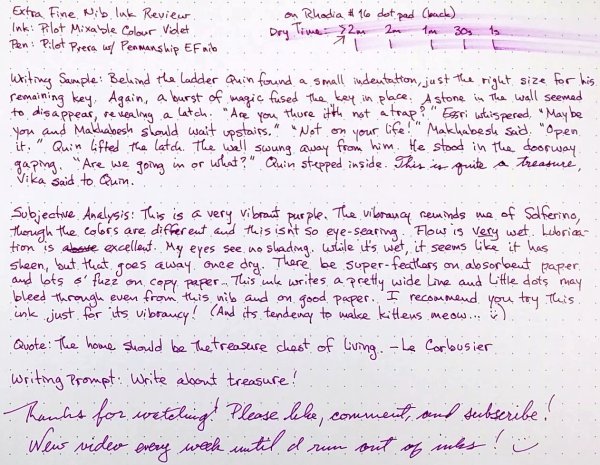 Extra Fine Nib Ink Review on Rhodia #16 dotpad (back)
Ink: Pilot Mixable Colour Violet Dry Time: >2m 2m 1m 30s 1s
Pen: Pilot Prera w/ Penmanship EF nib
Writing Sample: Behind the ladder Quin found a small indentation, just the right size for his
remaining key. Again, a burst of magic fused the key in place. A stone in the wall seemed
to disappear, revealing a latch. "Are you thure it'th not a trap?" Essri whispered. "Maybe
you and Makhabesh should wait upstairs." "Not on your life!" Makhabesh said. "Open
it." Quin lifted the latch. The wall swung away from him. He stood in the doorway
gaping. "Are we going in or what?" Quin stepped inside. This is quite a treasure,
Vika said to Quin.
Subjective Analysis: This is a very vibrant purple. The vibrancy reminds me of Solferino,
though the colors are different and this isnt so eye-searing. Flow is very wet. Lubrica-
tion is above excellent. My eyes see no shading. While it's wet, it seems like it has
sheen, but that goes away once dry. There be super-feathers on absorbent paper
and lots o' fuzz on copy paper. This ink writes a pretty wide line and little dots may
bleed through even from this nib and on good paper. I recommend you try this
ink just for its vibrancy! (And its tendency to make kittens meow... :)
Quote: The home should be the treasure chest of living. - Le Corbousier
Writing Prompt: Write about treasure!
Thanks for watching! Please like, comment, and subscribe!
New video every week until I run out of inks! :)